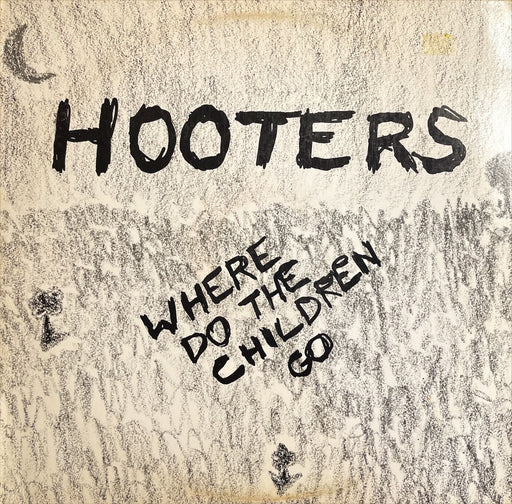 HOOTERS
WHERE
DO THE
CHILDREN
GO